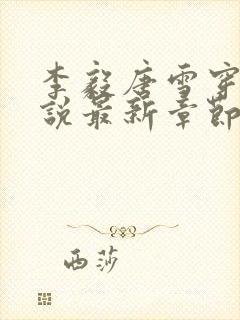 李毅唐雪穿
说最新章节
西莎